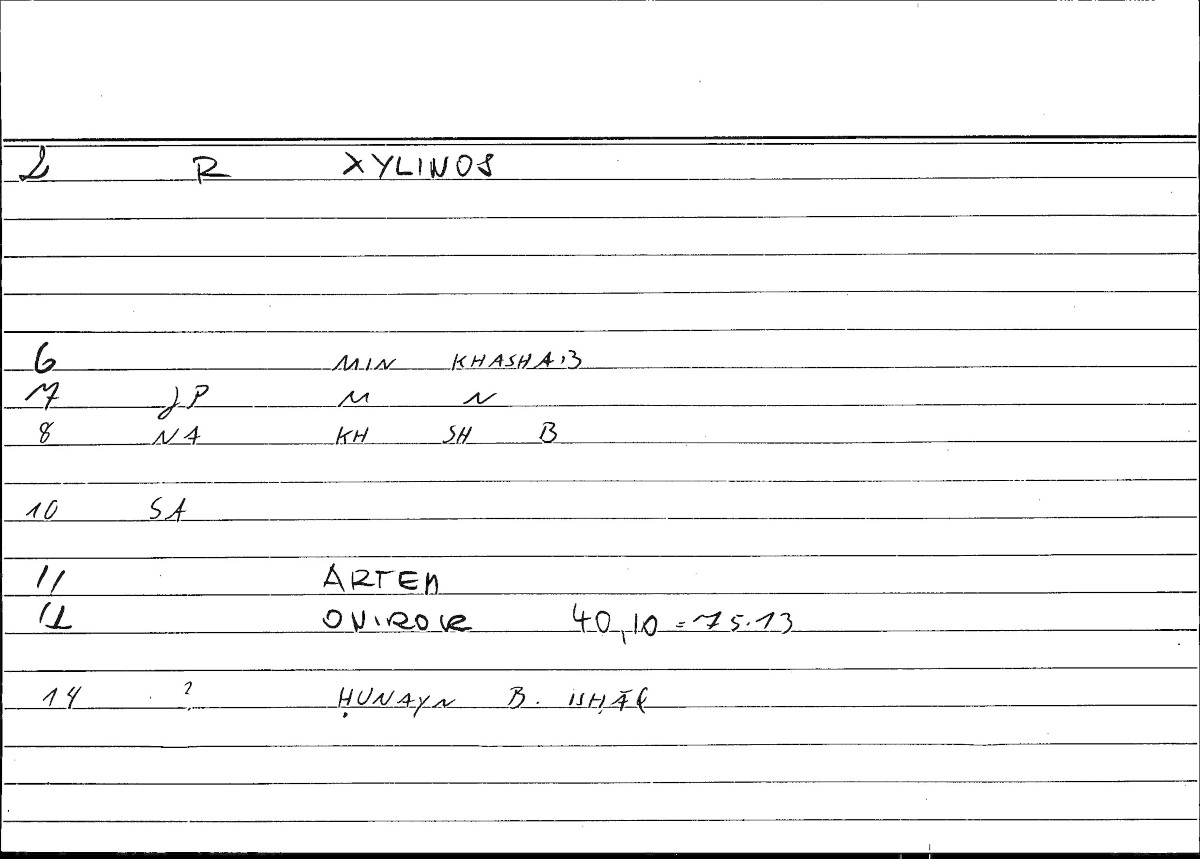 2 R XYLINOS
6 MIN KHASHAB
7 JP M N
8 NA KH SH B
10 SA
11 ARTEM
12 ONIROCR 40,10 = 75.13
14 ? ḤUNAYN B. ISḤĀQ